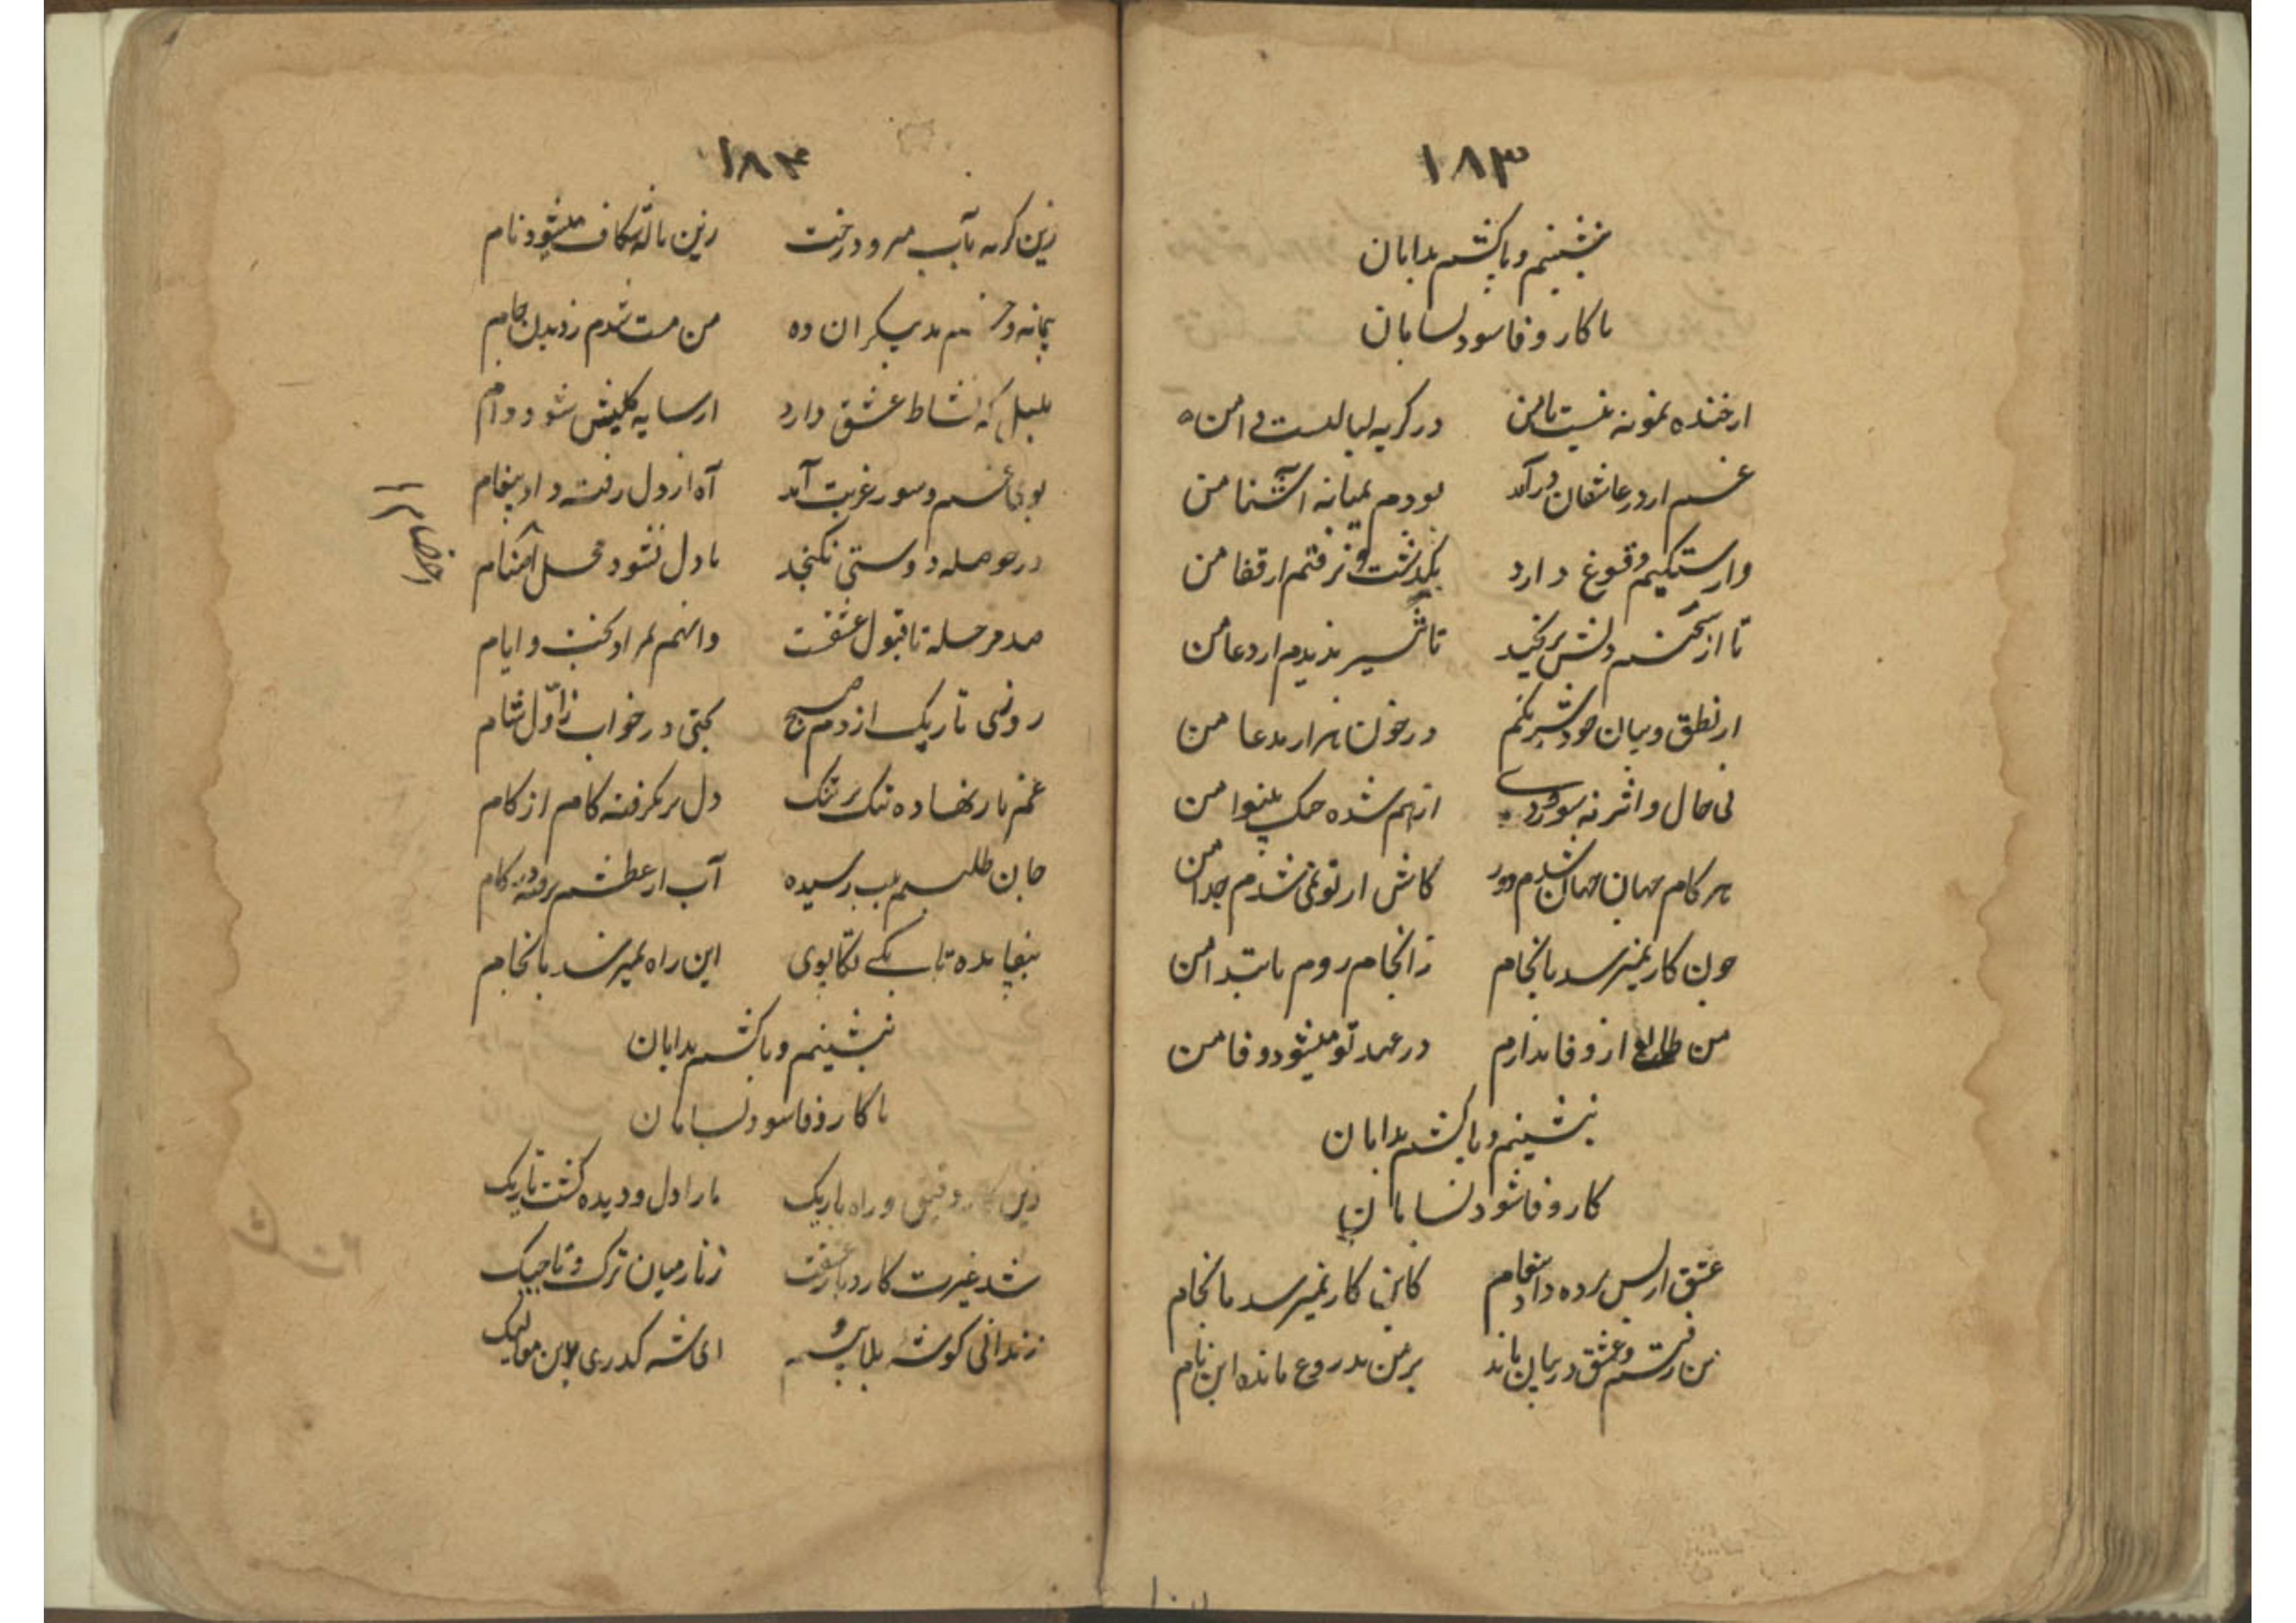 ۱۸۳
بنشینم و پا کشم بدامان
تا کار وفا شود بسامان
از خنده نمونه نیست با من
در گریه لبالبست دامن
غم از در عاشقان درآمد
بودم بمیانه آشنا من
وارستگیم وقوع دارد
بگذشت و نرفتم از قفا من
تا از سخنم دلش برنجید
تاثیر ندیدم از دعا من
از نطق و بیان خود شهیدم
در خون هزار مدعا من
نی حال و اثر نه سوز و دردی
از هم شده چنگ بینوا من
هر کام جهان جهان شدم دور
کاش از تو نمی شدم جدا من
چون کار نمیرسد بانجام
ز انجام روم بابتدا من
من طالع از وفا ندارم
در عهد تو میشود وفا من
بنشینم و پا کشم بدامان
کار وفا شود بسامان
عشق از پس پرده داد پیغام
کاین کار نمیرسد بانجام
من رفتم و عشق در میان ماند
بر من بدروغ مانده این نام
۱۸۴
زین گریه بآب میرود رخت
زین ناله شکاف میشود نام
پیمانه و می بدیگران ده
من مست شدم ز دیدن جام
بلبل که نشاط عشق دارد
از سایه گلبنش شود دام
بوی غم و سور غربت آمد
آه از دل رفته داد پیغام
در حوصله دوستی نگنجد
با دل نشود محل
صد مرحله تا قبول عشقست
وانهم بمراد بخت و ایام
روزی تاریک از دم صبح
بختی در خواب ز اول شام
غم بار نهاده تنگ بر تنگ
دل برگرفته کام از کام
جان طلبم بلب رسیده
آب از عطشم فرو رفته در کام
بیفایده تا بکی تکاپوی
این راه نمیرسد بانجام
بنشینم و پا کشم بدامان
تا کار وفا شود بسامان
زین کار دقیق و راه باریک
ما را دل و دیده گشت تاریک
شد غیرت کار و بار عشقت
زنار میان ترک و تاجیک
زندانی گوشه بلاییم
ای شه گذری باین ممالیک